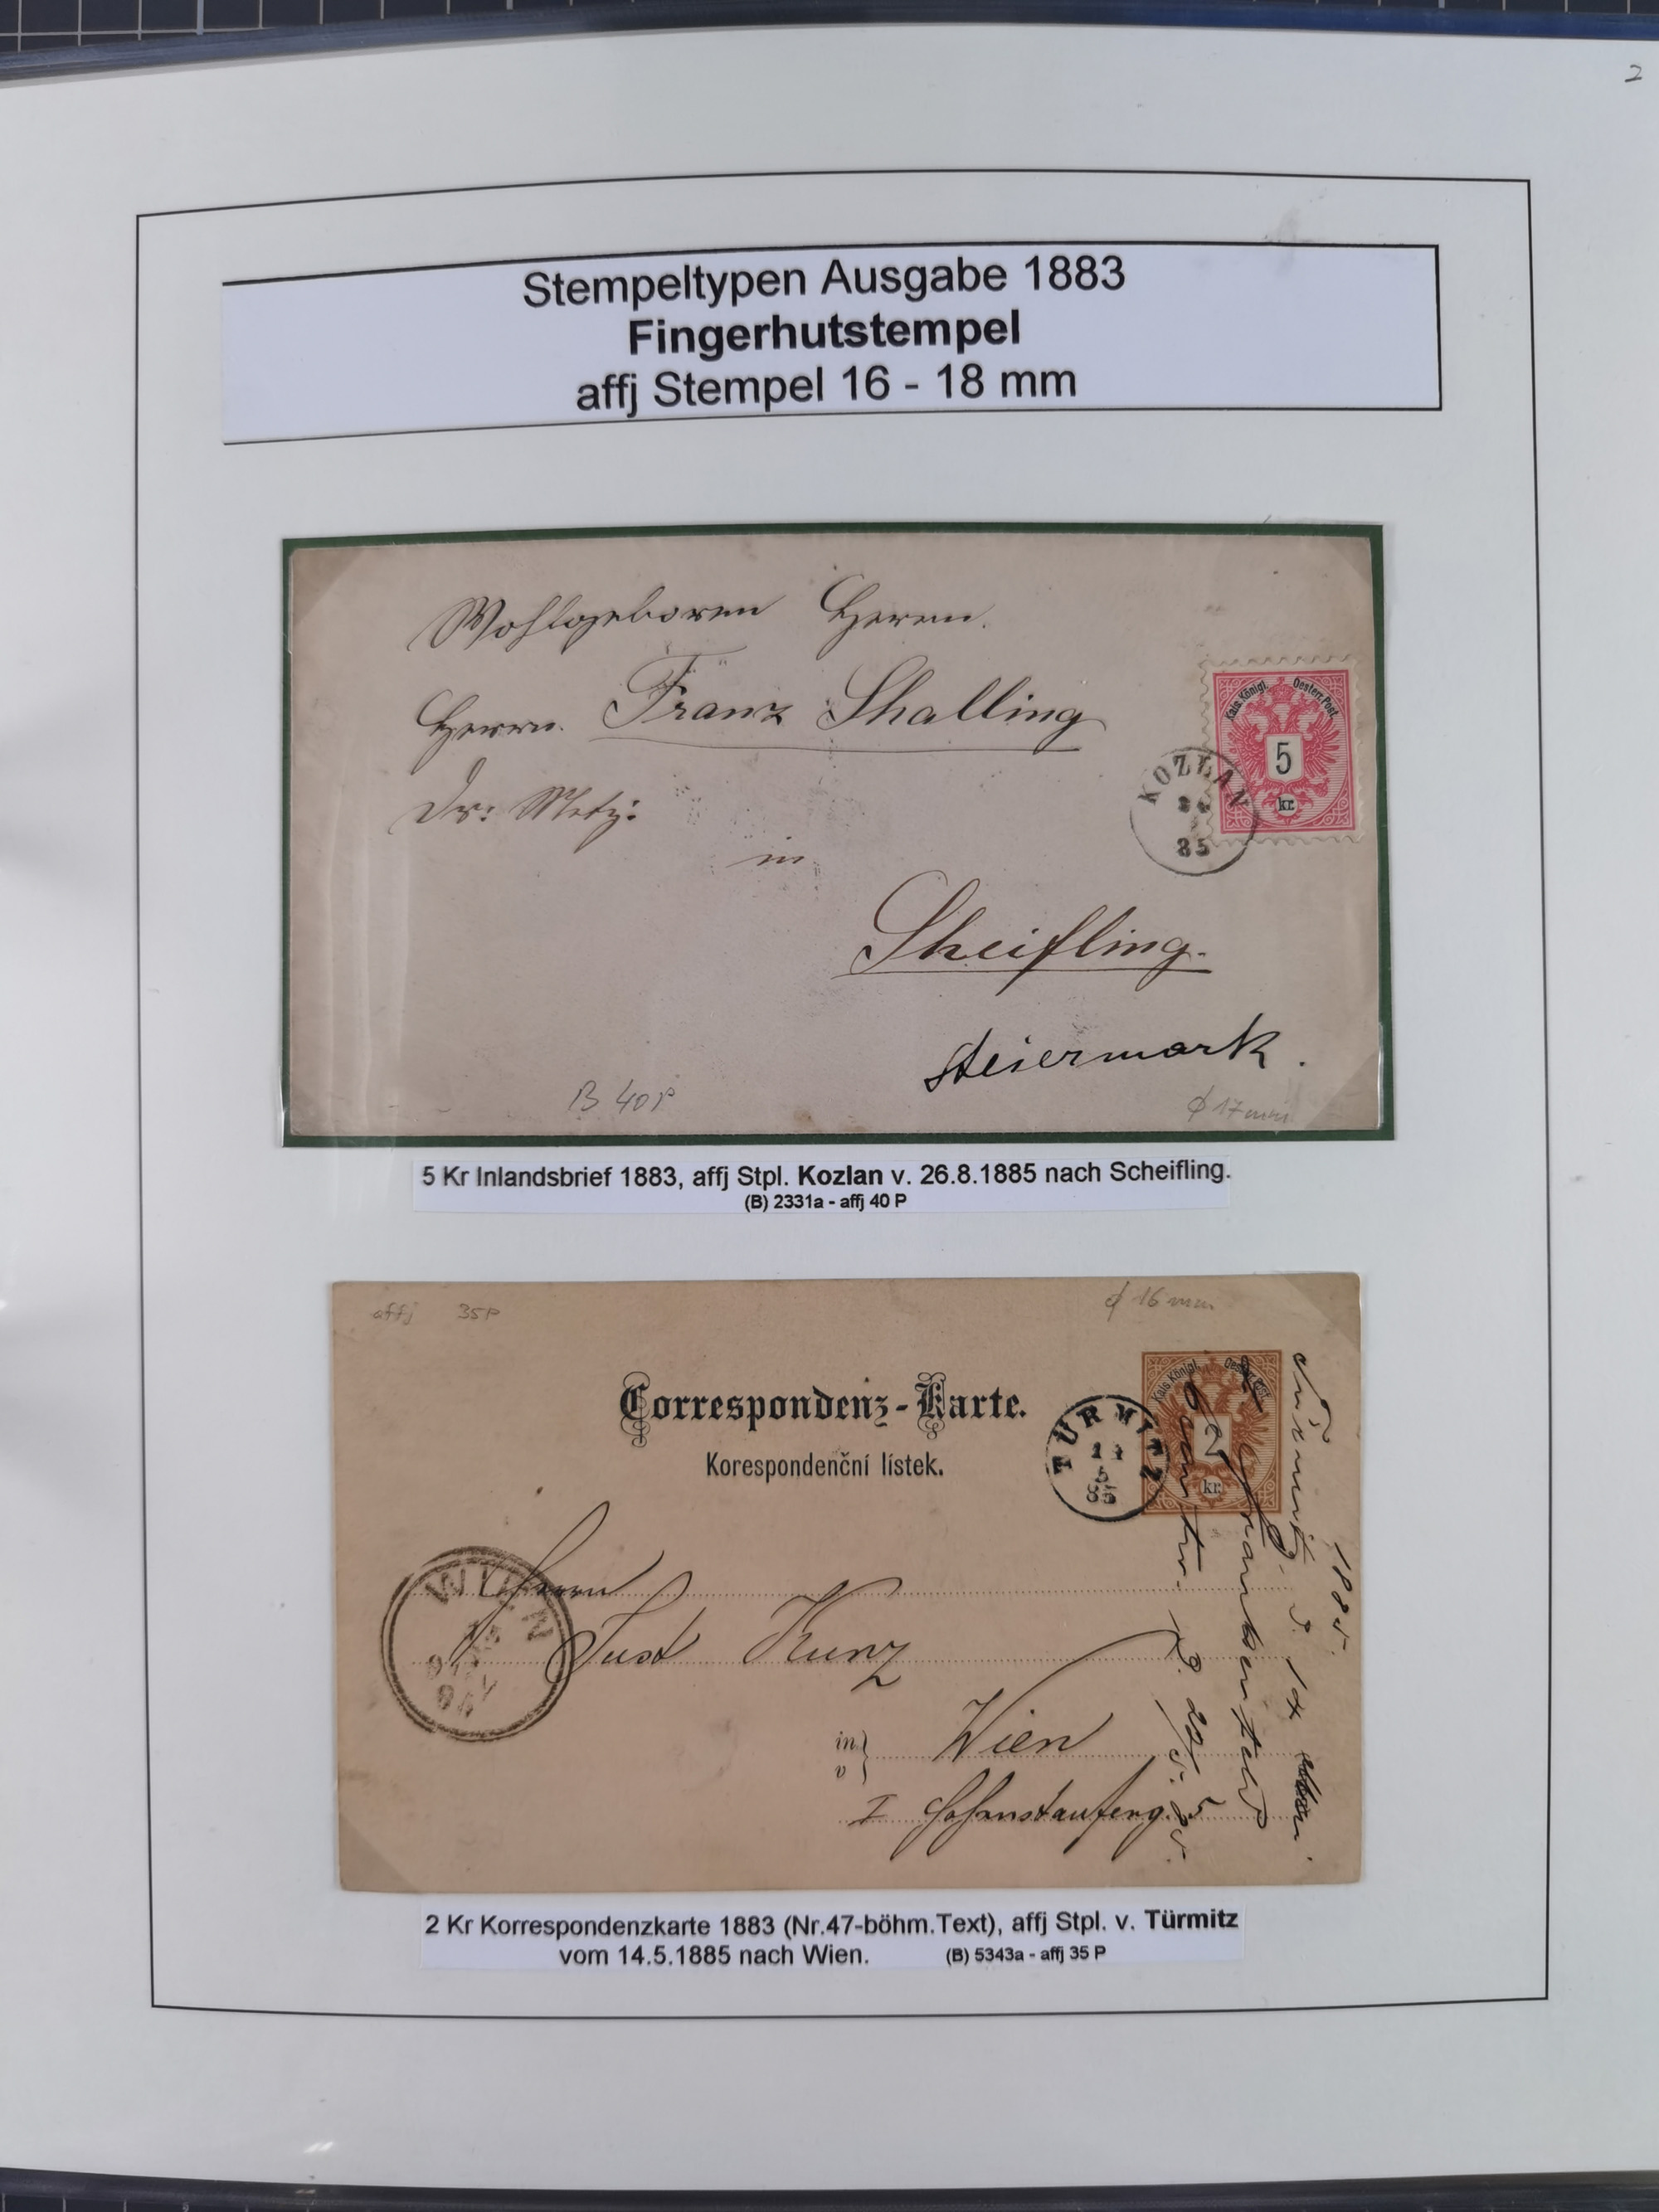 2
Stempeltypen Ausgabe 1883
Fingerhutstempel
affj Stempel 16 - 18 mm
Wohlgeboren Herrn.
Herrn. Franz Schalling
in
Scheifling.
Steiermark.
Kais. Königl. Oesterr. Post.
5
kr.
KOZLAN
85
B 40 P
ϕ 17 mm
5 Kr Inlandsbrief 1883, affj Stpl. Kozlan v. 26.8.1885 nach Scheifling.
(B) 2331a - affj 40 P
affj 35P
ϕ 16 mm
Correspondenz-Karte.
Korespondenční lístek.
Kais. Königl. Oesterr. Post.
2
kr.
TÜRMITZ
14
5
85
WIEN
Herrn
Just Kunz
in
v
Wien
I Hohenstaufeng. 5
1885.
2 Kr Korrespondenzkarte 1883 (Nr.47-böhm.Text), affj Stpl. v. Türmitz
vom 14.5.1885 nach Wien. (B) 5343a - affj 35 P